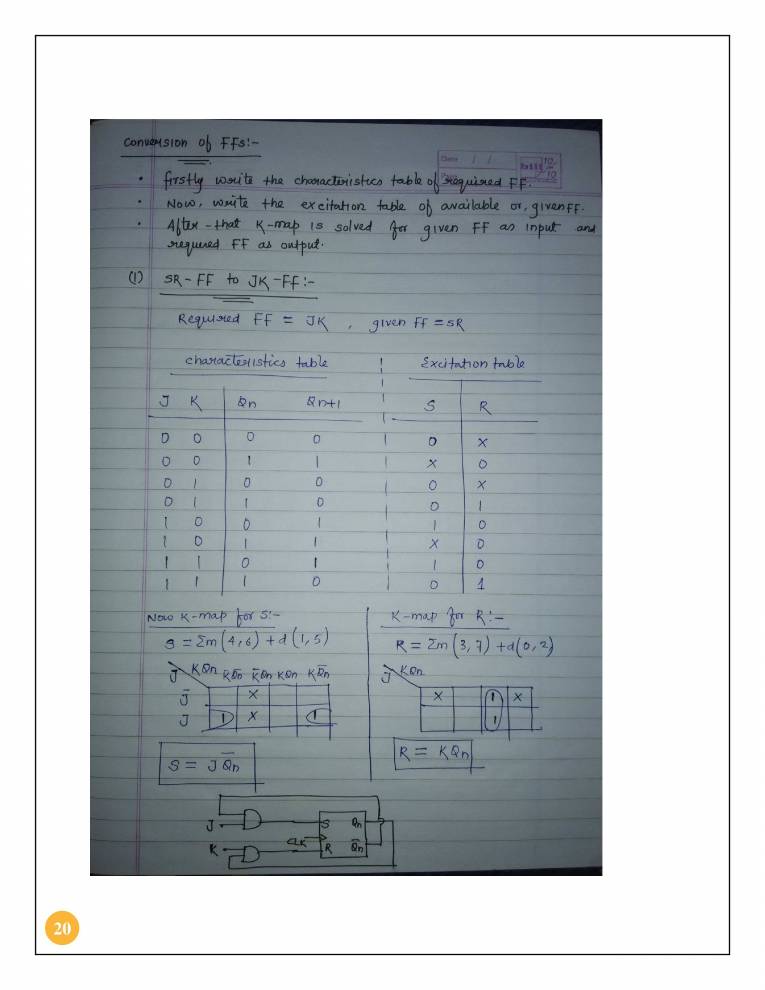 Conversion of FFs:-
Date / /
Page
• firstly write the characteristics table of required FF.
• Now, write the excitation table of available or, given FF.
• After-that K-map is solved for given FF as input and
required FF as output.
(1) SR-FF to JK-FF:-
Required FF = JK , given FF = SR
characteristics table Excitation table
J K Qn Qn+1 S R
0 0 0 0 0 X
0 0 1 1 X 0
0 1 0 0 0 X
0 1 1 0 0 1
1 0 0 1 1 0
1 0 1 1 X 0
1 1 0 1 1 0
1 1 1 0 0 1
Now K-map for S:-
S = Σm(4,6) + d(1,5)
J̄ KQn K̄Q̄n K̄Qn KQn KQ̄n
J̄ X
J 1 X 1
S = J Q̄n
K-map for R:-
R = Σm(3,7) + d(0,2)
J KQn
X 1 X
1
R = KQn
J S Qn
K CLK R Q̄n
20